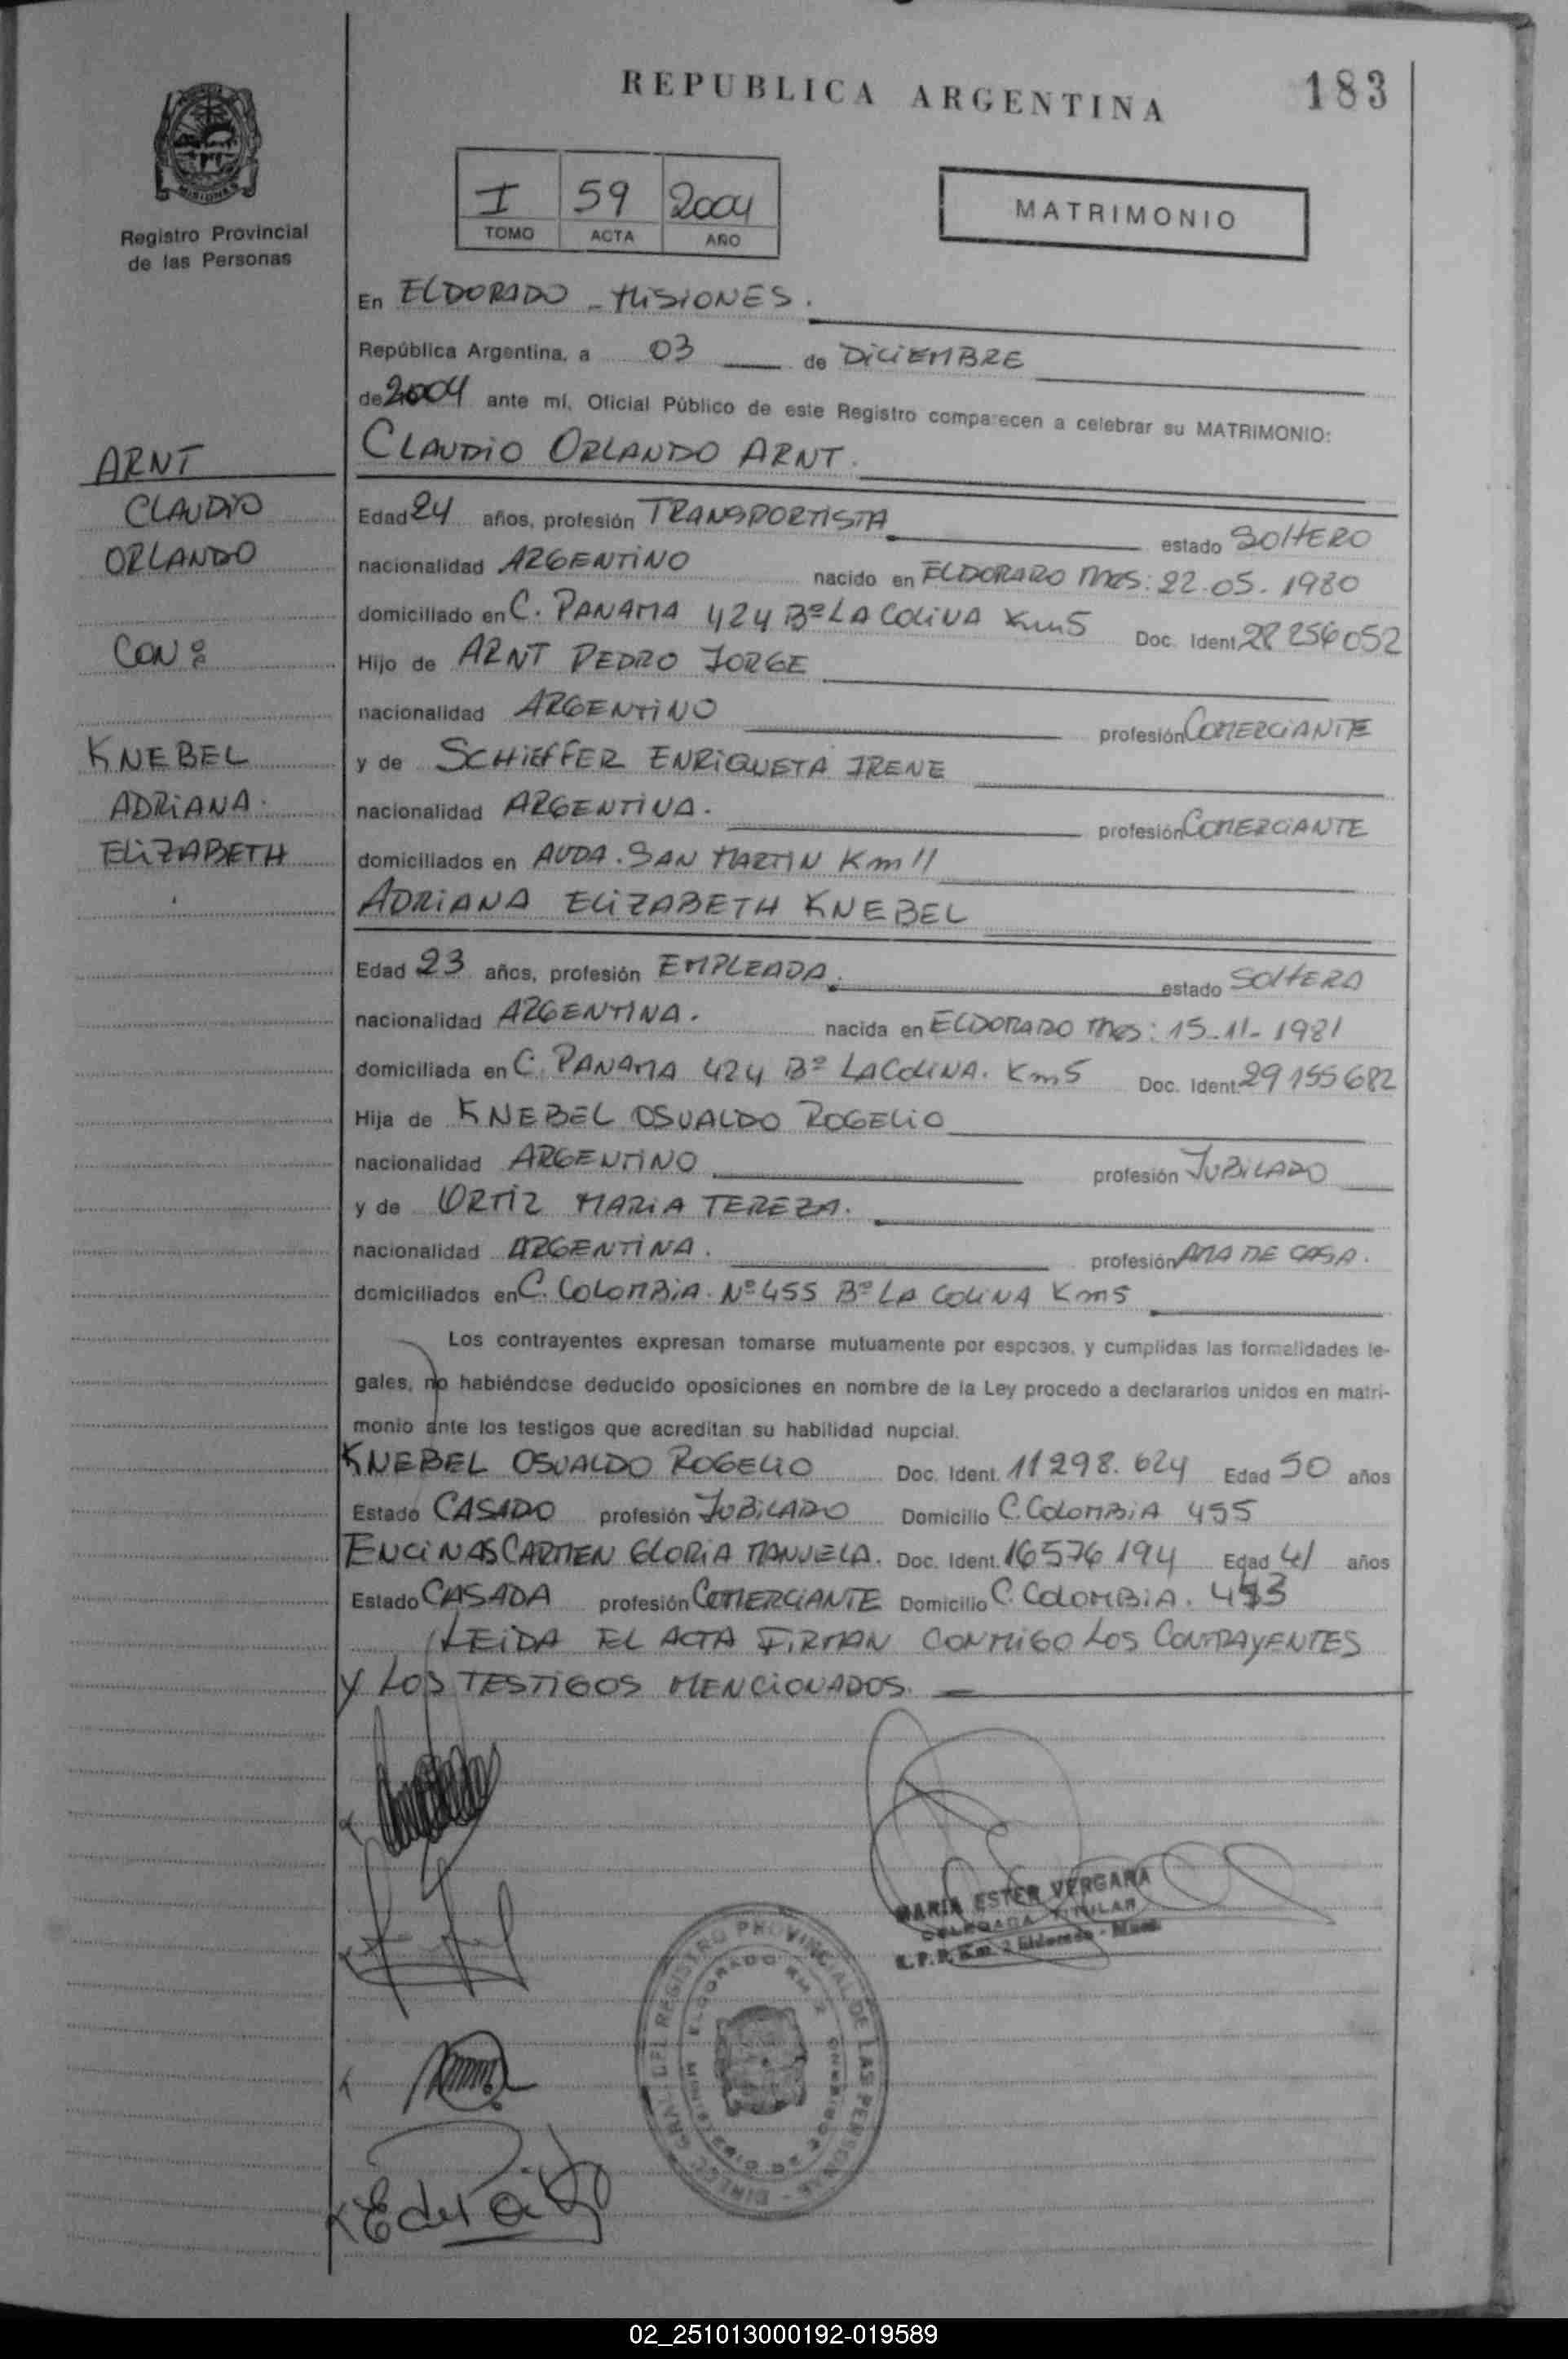 REPUBLICA ARGENTINA
183
MISIONES
Registro Provincial
de las Personas
I 59 2004
TOMO ACTA AÑO
MATRIMONIO
En ELDORADO - MISIONES.
República Argentina, a 03 de DICIEMBRE
de 2004 ante mí, Oficial Público de este Registro comparecen a celebrar su MATRIMONIO:
ARNT
CLAUDIO
ORLANDO
CON:
KNEBEL
ADRIANA.
ELIZABETH
CLAUDIO ORLANDO ARNT.
Edad 24 años, profesión TRANSPORTISTA estado SOLTERO
nacionalidad ARGENTINO nacido en ELDORADO Mnes: 22.05.1980
domiciliado en C. PANAMA 424 Bº LA COLINA Km5 Doc. Ident. 28 256 052
Hijo de ARNT PEDRO JORGE
nacionalidad ARGENTINO profesión COMERCIANTE
y de SCHIEFFER ENRIQUETA IRENE
nacionalidad ARGENTINA. profesión COMERCIANTE
domiciliados en AVDA. SAN MARTIN Km 11
ADRIANA ELIZABETH KNEBEL
Edad 23 años, profesión EMPLEADA. estado SOLTERA
nacionalidad ARGENTINA. nacida en ELDORADO Mnes: 15-11-1981
domiciliada en C. PANAMA 424 Bº LA COLINA. Km5 Doc. Ident. 29 155 682
Hija de KNEBEL OSVALDO ROGELIO
nacionalidad ARGENTINO profesión JUBILADO
y de ORTIZ MARIA TEREZA.
nacionalidad ARGENTINA. profesión AMA DE CASA.
domiciliados en C. COLOMBIA. Nº 455 Bº LA COLINA Km5
Los contrayentes expresan tomarse mutuamente por esposos, y cumplidas las formalidades le-
gales, no habiéndose deducido oposiciones en nombre de la Ley procedo a declararlos unidos en matri-
monio ante los testigos que acreditan su habilidad nupcial.
KNEBEL OSVALDO ROGELIO Doc. Ident. 11 298.624 Edad 50 años
Estado CASADO profesión JUBILADO Domicilio C. COLOMBIA 455
ENCINAS CARMEN GLORIA MANUELA. Doc. Ident. 16576 194 Edad 41 años
Estado CASADA profesión COMERCIANTE Domicilio C. COLOMBIA. 413
LEIDA EL ACTA FIRMAN CONMIGO LOS CONTRAYENTES
Y LOS TESTIGOS MENCIONADOS.
MARIA ESTER VERGARA
DELEGADA TITULAR
R.P.P. Km. 2 Eldorado - Mnes.
DIREC. GRAL. DEL REGISTRO PROVINCIAL DE LAS PERSONAS
ELDORADO KM 2
02_251013000192-019589